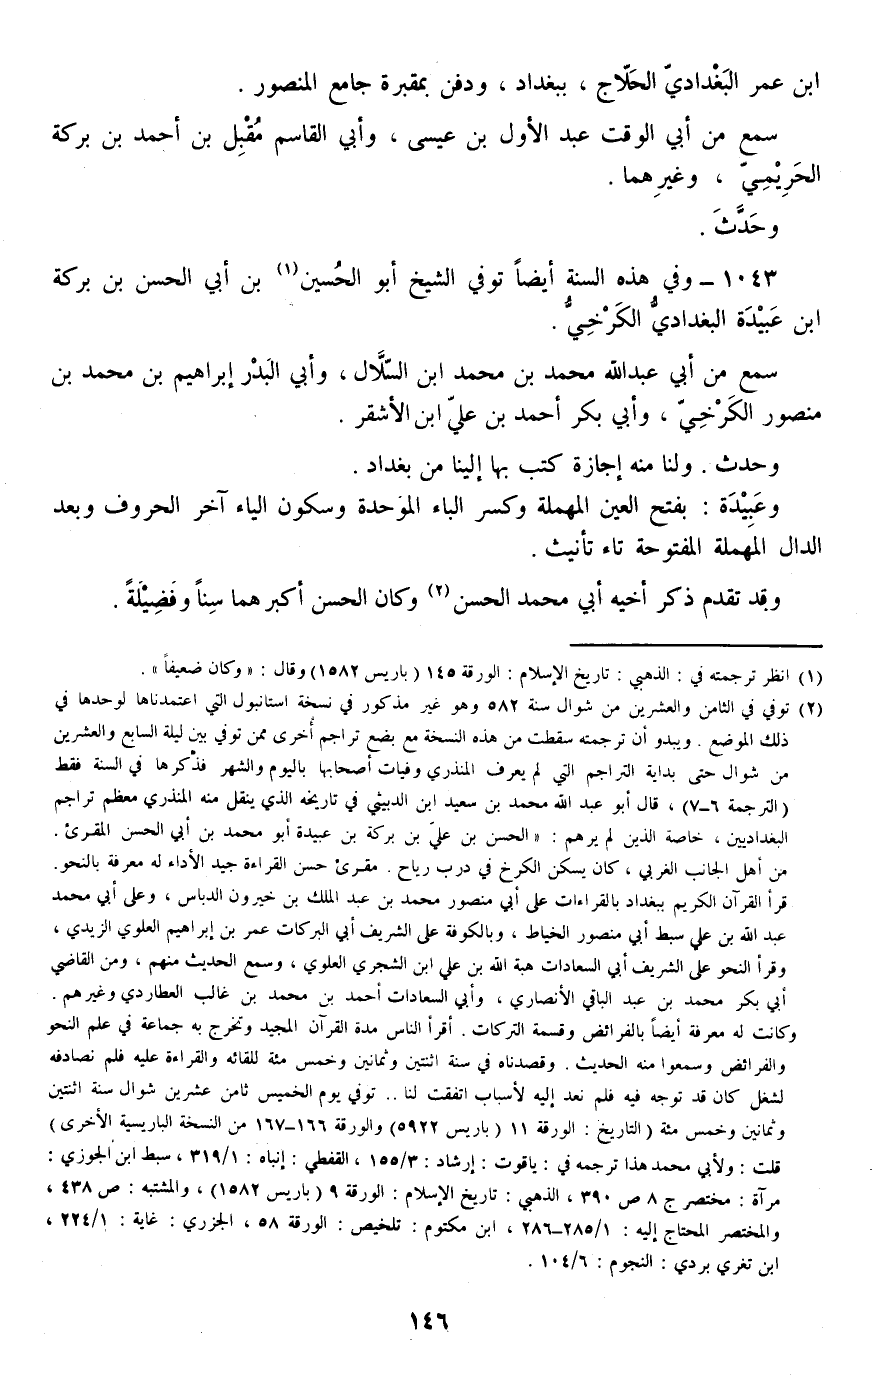 ابن عمر البَغْداديّ الحَلّاج ، ببغداد ، ودفن بمقبرة جامع المنصور .
سمع من أبي الوقت عبد الأول بن عيسى ، وأبي القاسم مُقْبِل بن أحمد بن بركة
الحَرِيْمِيّ ، وغيرِهما .
وحَدَّثَ .
١٠٤٣ – وفي هذه السنة أيضاً توفي الشيخ أبو الحُسين(١) بن أبي الحسن بن بركة
ابن عَبِيْدَة البغداديُّ الكَرْخِيُّ .
سمع من أبي عبدالله محمد بن محمد ابن السّلَّال ، وأبي البَدْر إبراهيم بن محمد بن
منصور الكَرْخِيّ ، وأبي بكر أحمد بن عليّ ابن الأشقر .
وحدث . ولنا منه إجازة كتب بها إلينا من بغداد .
وعَبِيْدَة : بفتح العين المهملة وكسر الباء الموحدة وسكون الياء آخر الحروف وبعد
الدال المهملة المفتوحة تاء تأنيث .
وقد تقدم ذكر أخيه أبي محمد الحسن(٢) وكان الحسن أكبرهما سِناً وفَضِيْلَةً .
(١) انظر ترجمته في : الذهبي : تاريخ الإسلام : الورقة ١٤٥ ( باريس ١٥٨٢) وقال : « وكان ضعيفاً » .
(٢) توفي في الثامن والعشرين من شوال سنة ٥٨٢ وهو غير مذكور في نسخة استانبول التي اعتمدناها لوحدها في
ذلك الموضع . ويبدو أن ترجمته سقطت من هذه النسخة مع بضع تراجم أُخرى ممن توفي بين ليلة السابع والعشرين
من شوال حتى بداية التراجم التي لم يعرف المنذري وفيات أصحابها باليوم والشهر فذكرها في السنة فقط
(الترجمة ٦–٧) ، قال أبو عبد الله محمد بن سعيد ابن الدبيثي في تاريخه الذي ينقل منه المنذري معظم تراجم
البغداديين ، خاصة الذين لم يرهم : « الحسن بن عليّ بن بركة بن عبيدة أبو محمد بن أبي الحسن المقرىء .
من أهل الجانب الغربي ، كان يسكن الكرخ في درب رياح . مقرىء حسن القراءة جيد الأداء له معرفة بالنحو.
قرأ القرآن الكريم ببغداد بالقراءات على أبي منصور محمد بن عبد الملك بن خيرون الدباس ، وعلى أبي محمد
عبد الله بن علي سبط أبي منصور الخياط ، وبالكوفة على الشريف أبي البركات عمر بن إبراهيم العلوي الزيدي ،
وقرأ النحو على الشريف أبي السعادات هبة الله بن علي ابن الشجري العلوي ، وسمع الحديث منهم ، ومن القاضي
أبي بكر محمد بن عبد الباقي الأنصاري ، وأبي السعادات أحمد بن محمد بن غالب العطاردي وغيرهم .
وكانت له معرفة أيضاً بالفرائض وقسمة التركات . أقرأ الناس مدة القرآن المجيد وتخرج به جماعة في علم النحو
والفرائض وسمعوا منه الحديث . وقصدناه في سنة اثنتين وثمانين وخمس مئة للقائه والقراءة عليه فلم نصادفه
لشغل كان قد توجه فيه فلم نعد إليه لأسباب اتفقت لنا .. توفي يوم الخميس ثامن عشرين شوال سنة اثنتين
وثمانين وخمس مئة (التاريخ : الورقة ١١ ( باريس ٥٩٢٢) والورقة ١٦٦–١٦٧ من النسخة الباريسية الأخرى)
قلت : ولأبي محمد هذا ترجمه في : ياقوت : إرشاد : ١٥٥/٣ ، القفطي : إنباه : ٣١٩/١ ، سبط ابن الجوزي :
مرآة : مختصر ج ٨ ص ٣٩٠ ، الذهبي : تاريخ الإسلام : الورقة ٩ ( باريس ١٥٨٢) ، والمشتبه : ص ٤٣٨ ،
والمختصر المحتاج إليه : ٢٨٥/١–٢٨٦ ، ابن مكتوم : تلخيص : الورقة ٥٨ ، الجزري : غاية : ٢٢٤/١ ،
ابن تغري بردي : النجوم : ١٠٤/٦ .
١٤٦